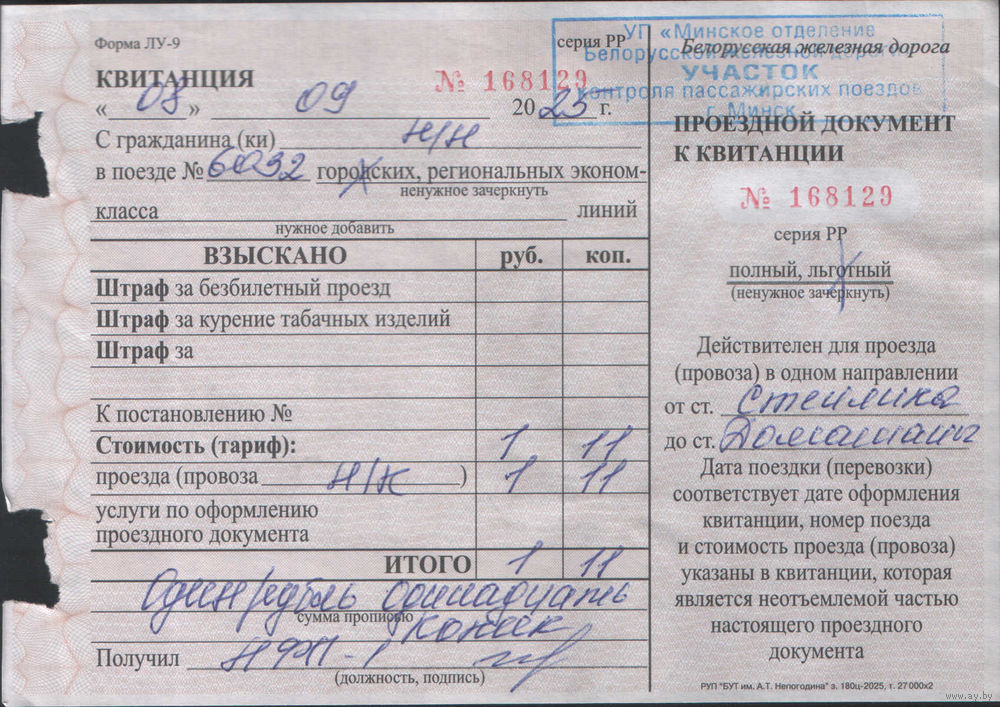 Форма ЛУ-9
серия РР
КВИТАНЦИЯ
№ 168129
« 08 » 09 2025 г.
С гражданина (ки) Н/Н
в поезде № 6032 городских, региональных эконом-
ненужное зачеркнуть
класса линий
нужное добавить
ВЗЫСКАНО руб. коп.
Штраф за безбилетный проезд
Штраф за курение табачных изделий
Штраф за
К постановлению №
Стоимость (тариф): 1 11
проезда (провоза Н/К ) 1 11
услуги по оформлению
проездного документа
ИТОГО 1 11
Один рубль одинадцать
сумма прописью
копеек
Получил
(должность, подпись)
УП «Минское отделение
Белорусской железной дороги
УЧАСТОК
контроля пассажирских поездов
г. Минск
Белорусская железная дорога
ПРОЕЗДНОЙ ДОКУМЕНТ
К КВИТАНЦИИ
№ 168129
серия РР
полный, льготный
(ненужное зачеркнуть)
Действителен для проезда
(провоза) в одном направлении
от ст.
до ст.
Дата поездки (перевозки)
соответствует дате оформления
квитанции, номер поезда
и стоимость проезда (провоза)
указаны в квитанции, которая
является неотъемлемой частью
настоящего проездного
документа
РУП "БУТ им. А.Т. Непогодина" з. 180ц-2025, т. 27 000х2
www.ay.by